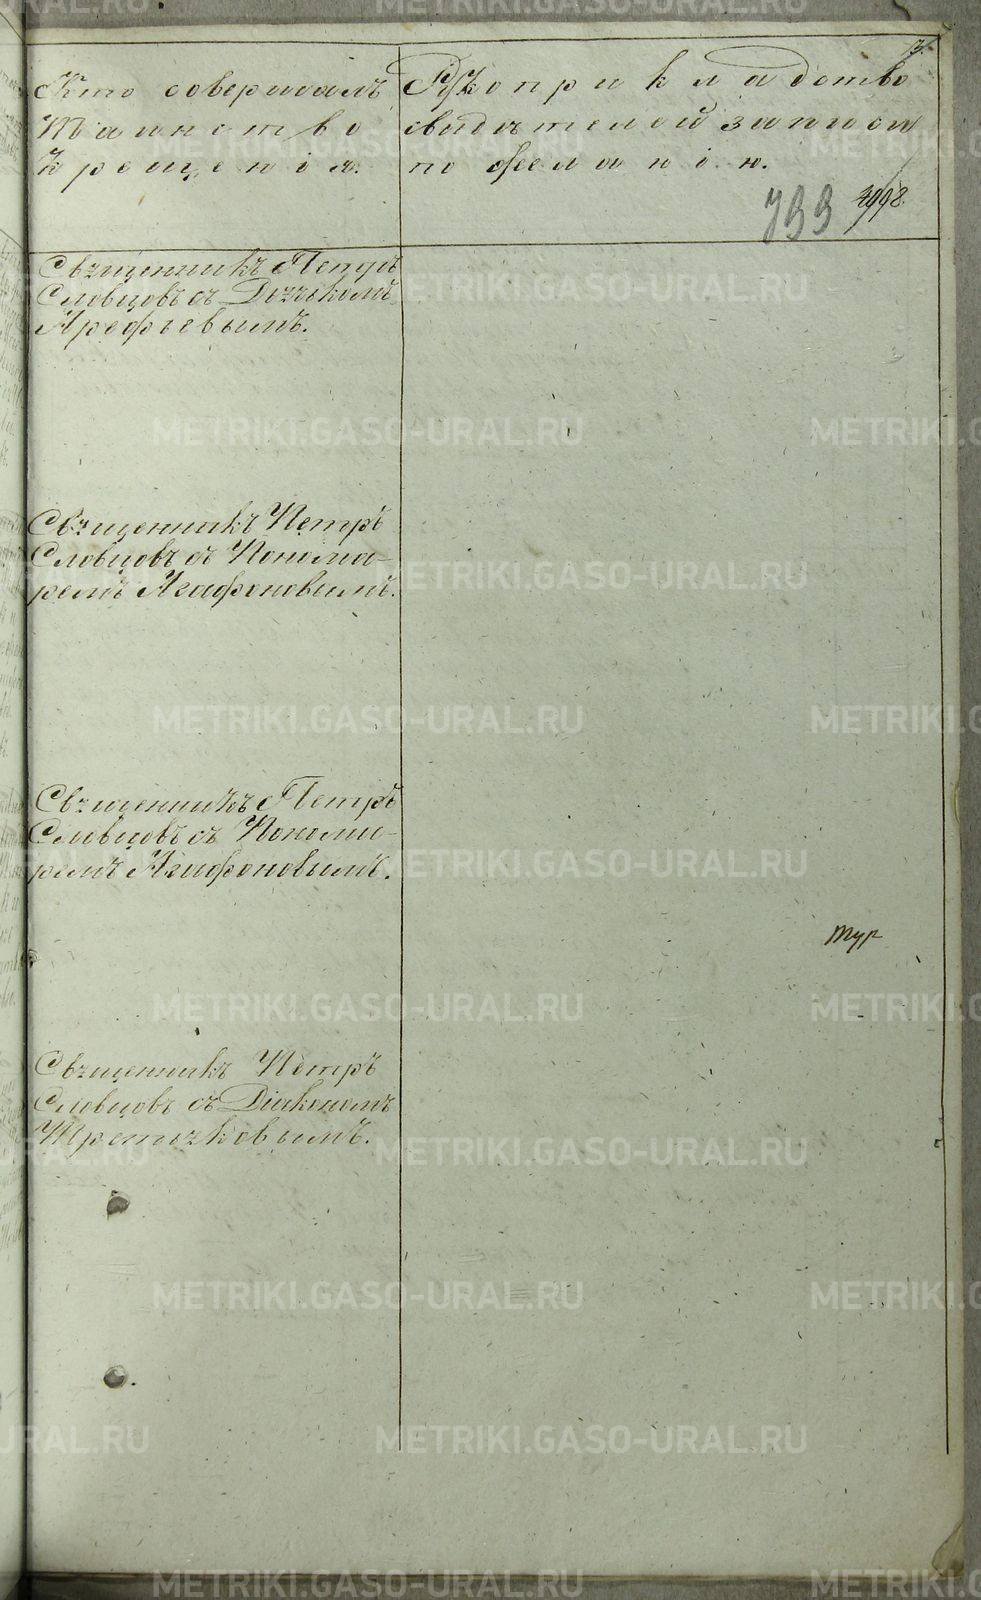 Кто совершалъ
Таинство
Крещенія.
Рукоприкладство
свидѣтелей записи
по желанію.
793
Священникъ Петръ
Словцовъ съ Дьячкомъ
Арефьевымъ.
Священникъ Петръ
Словцовъ съ Понома-
ремъ Агафоновымъ.
Священникъ Петръ
Словцовъ съ Понома-
ремъ Агафоновымъ.
Священникъ Петръ
Словцовъ съ Діакономъ
Третьяковымъ.
METRIKI.GASO-URAL.RU